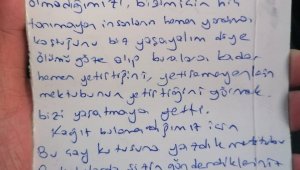 olmadığımızı, bizim için hiç
tanımayan insanların hemen yardıma
koştuğunu biz yaşayalım diye
ölümü göze alıp buralara kadar
hemen yetiştiğini, yetişemeyenlerin
mektubunun yetiştiğini görmek
bizi yaşatmaya yetti.
Kağıt bulamadığımız için
Bu çay kutusuna yazdık mektubu
sizin gönderdikleriniz